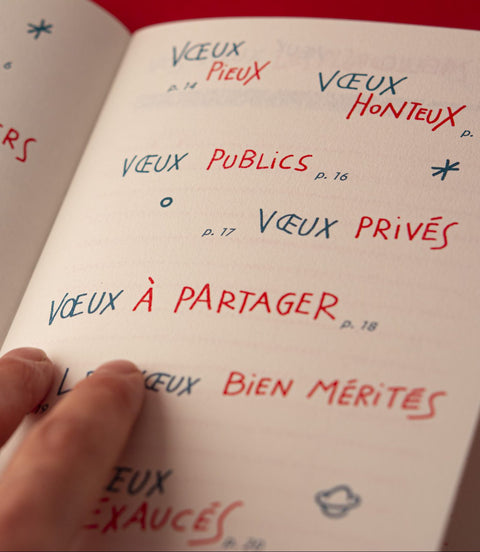 6
ERS
VŒUX
PIEUX
p. 14
VŒUX
HONTEUX
p.
VŒUX PUBLICS p. 16
p. 17 VŒUX PRIVÉS
VŒUX À PARTAGER p. 18
VŒUX BIEN MÉRITÉS
19
ŒUX
EXAUCÉS
p. 20